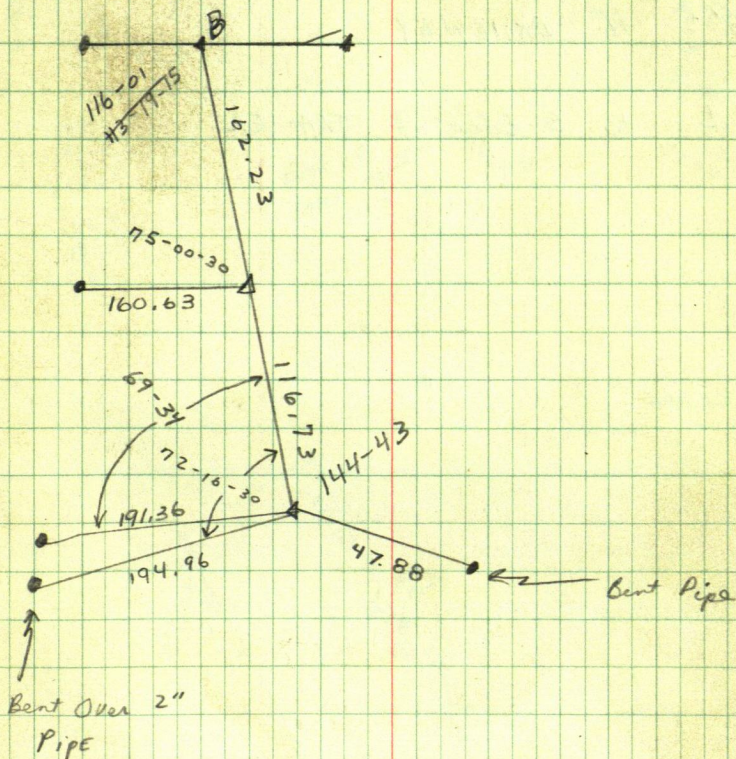 B
116-01
113-19-15
162.23
75-00-30
160.63
69-34
116.73
72-16-30
144-43
191.36
194.96
47.88
Bent Pipe
Bent Over 2"
Pipe